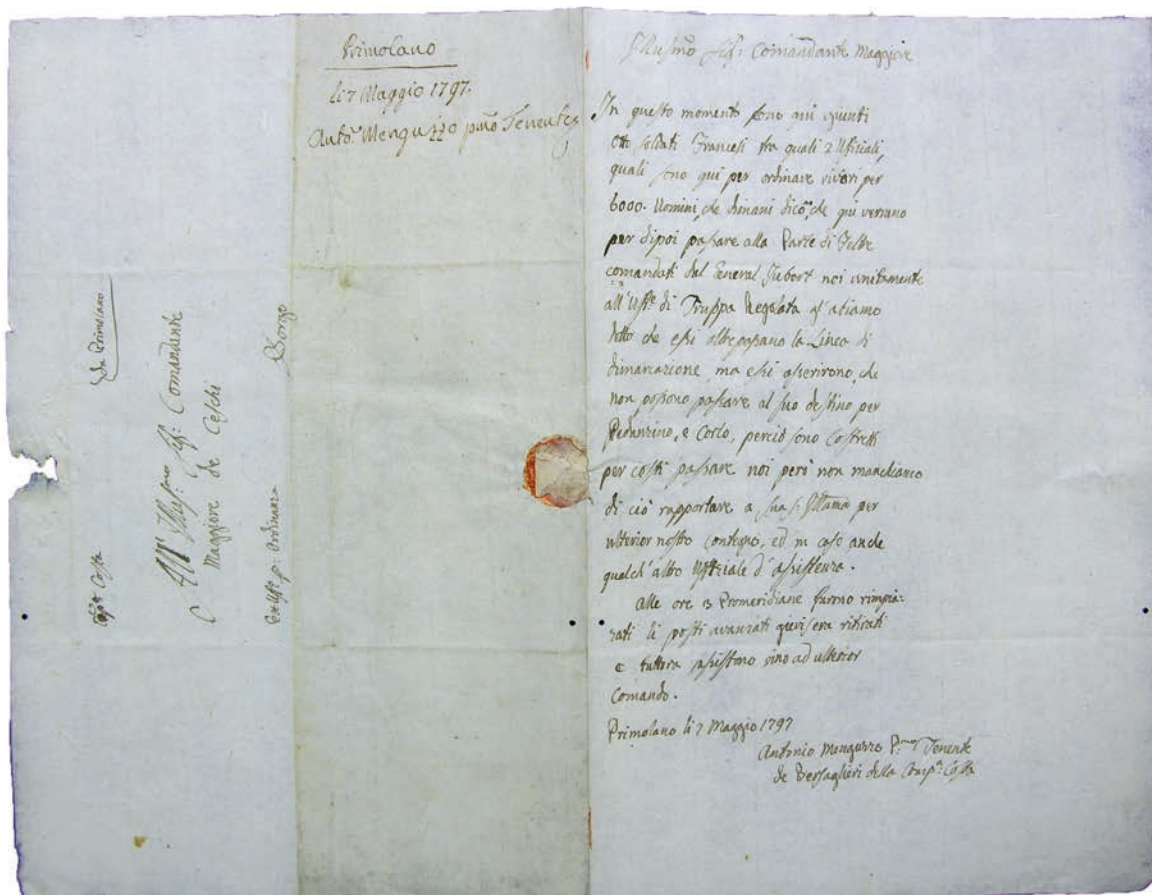 Primolano
li 7 Maggio 1797.
Anto: Menguzzo pmo Tenente
Da Primolano
All' Illus:mo Sig: Comandante
Maggiore de Ceschi
Borgo
Capn Costa
Ex Uffo p: Ordinanza
Illusmo Sig: Comandante Maggiore
In questo momento sono qui giunti
Otto soldati Francesi tra quali 2 Ufiziali,
quali sono qui per ordinare viveri per
6000. Uomini, che dimani dico, che qui verrano
per dipoi passare alla Parte di Feltre
comandati dal General Jubert noi unitamente
all' Uffle di Truppa Regolata gl' abiamo
detto che essi oltrepassano la Linea di
dimarcazione, ma essi asserirono, che
non possono passare al suo destino per
e Corlo, perciò sono Costretti
per costi passare noi però non manchiamo
di ciò rapportare a Sua S: Illma per
ulterior nostro contegno, ed in caso anche
qualch' altro Uffiziale d' assistenza.
Alle ore 3 Promeridiane furono rimpia:
zati li posti avanzati gieri sera ritirati
e tuttora assistono sino ad ulterior
Comando.
Primolano li 7 Maggio 1797
Antonio Menguzzo P:mo Tenente
de Bersaglieri della Comp: Costa